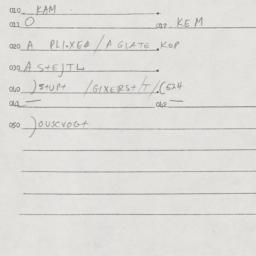 010 KAM
011 O 012 KEM
020 A PLIXED / A GLATE KOP
030 A StEJTL
040 )StUPt /GIXERSt/T/(524
041 — 042 —
050 )OUSCVOGt